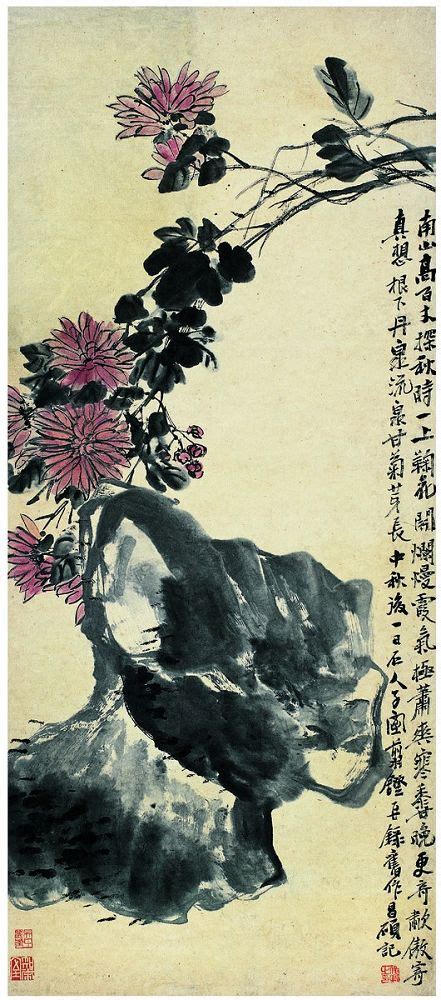 南山高百丈探秋時一上鞠花開爛熳霞氣極蕭爽寒香晚更奇歗傲寄
真想根下丹泉流泉甘菊芽長中秋後一日石人子國剪鐙再錄舊作昌碩記